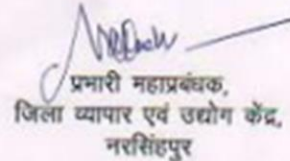 प्रभारी महाप्रबंधक,
जिला व्यापार एवं उद्योग केंद्र,
नरसिंहपुर